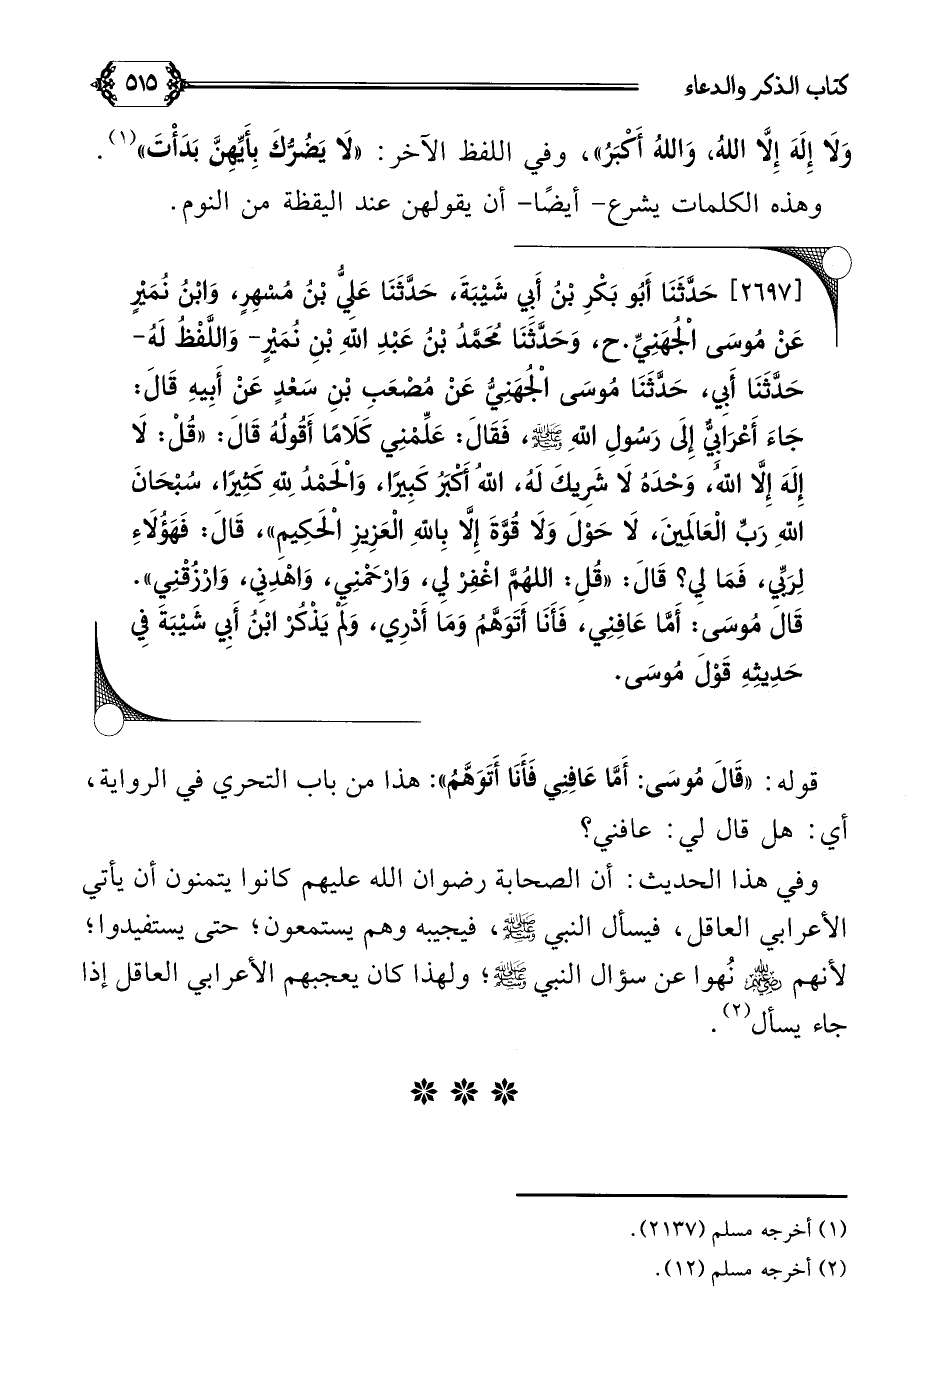 كتاب الذكر والدعاء ٥١٥
وَلَا إِلَهَ إِلَّا اللهُ، وَاللهُ أَكْبَرُ»، وفي اللفظ الآخر: «لَا يَضُرُّكَ بِأَيِّهِنَّ بَدَأْتَ»(١).
وهذه الكلمات يشرع- أيضًا- أن يقولهن عند اليقظة من النوم.
[٢٦٩٧] حَدَّثَنَا أَبُو بَكْرِ بْنُ أَبِي شَيْبَةَ، حَدَّثَنَا عَلِيُّ بْنُ مُسْهِرٍ، وَابْنُ نُمَيْرٍ
عَنْ مُوسَى الْجُهَنِيِّ.ح، وَحَدَّثَنَا مُحَمَّدُ بْنُ عَبْدِ اللهِ بْنِ نُمَيْرٍ- وَاللَّفْظُ لَهُ-
حَدَّثَنَا أَبِي، حَدَّثَنَا مُوسَى الْجُهَنِيُّ عَنْ مُصْعَبِ بْنِ سَعْدٍ عَنْ أَبِيهِ قَالَ:
جَاءَ أَعْرَابِيٌّ إِلَى رَسُولِ اللهِ ﷺ، فَقَالَ: عَلِّمْنِي كَلَامًا أَقُولُهُ قَالَ: «قُلْ: لَا
إِلَهَ إِلَّا اللهُ، وَحْدَهُ لَا شَرِيكَ لَهُ، اللهُ أَكْبَرُ كَبِيرًا، وَالْحَمْدُ لِلهِ كَثِيرًا، سُبْحَانَ
اللهِ رَبِّ الْعَالَمِينَ، لَا حَوْلَ وَلَا قُوَّةَ إِلَّا بِاللهِ الْعَزِيزِ الْحَكِيمِ»، قَالَ: فَهَؤُلَاءِ
لِرَبِّي، فَمَا لِي؟ قَالَ: «قُلِ: اللهُمَّ اغْفِرْ لِي، وَارْحَمْنِي، وَاهْدِنِي، وَارْزُقْنِي».
قَالَ مُوسَى: أَمَّا عَافِنِي، فَأَنَا أَتَوَهَّمُ وَمَا أَدْرِي، وَلَمْ يَذْكُرْ ابْنُ أَبِي شَيْبَةَ فِي
حَدِيثِهِ قَوْلَ مُوسَى.
قوله: «قَالَ مُوسَى: أَمَّا عَافِنِي فَأَنَا أَتَوَهَّمُ»: هذا من باب التحري في الرواية،
أي: هل قال لي: عافني؟
وفي هذا الحديث: أن الصحابة رضوان الله عليهم كانوا يتمنون أن يأتي
الأعرابي العاقل، فيسأل النبي ﷺ، فيجيبه وهم يستمعون؛ حتى يستفيدوا؛
لأنهم رضي الله عنهم نُهوا عن سؤال النبي ﷺ؛ ولهذا كان يعجبهم الأعرابي العاقل إذا
جاء يسأل(٢).
(١) أخرجه مسلم (٢١٣٧).
(٢) أخرجه مسلم (١٢).